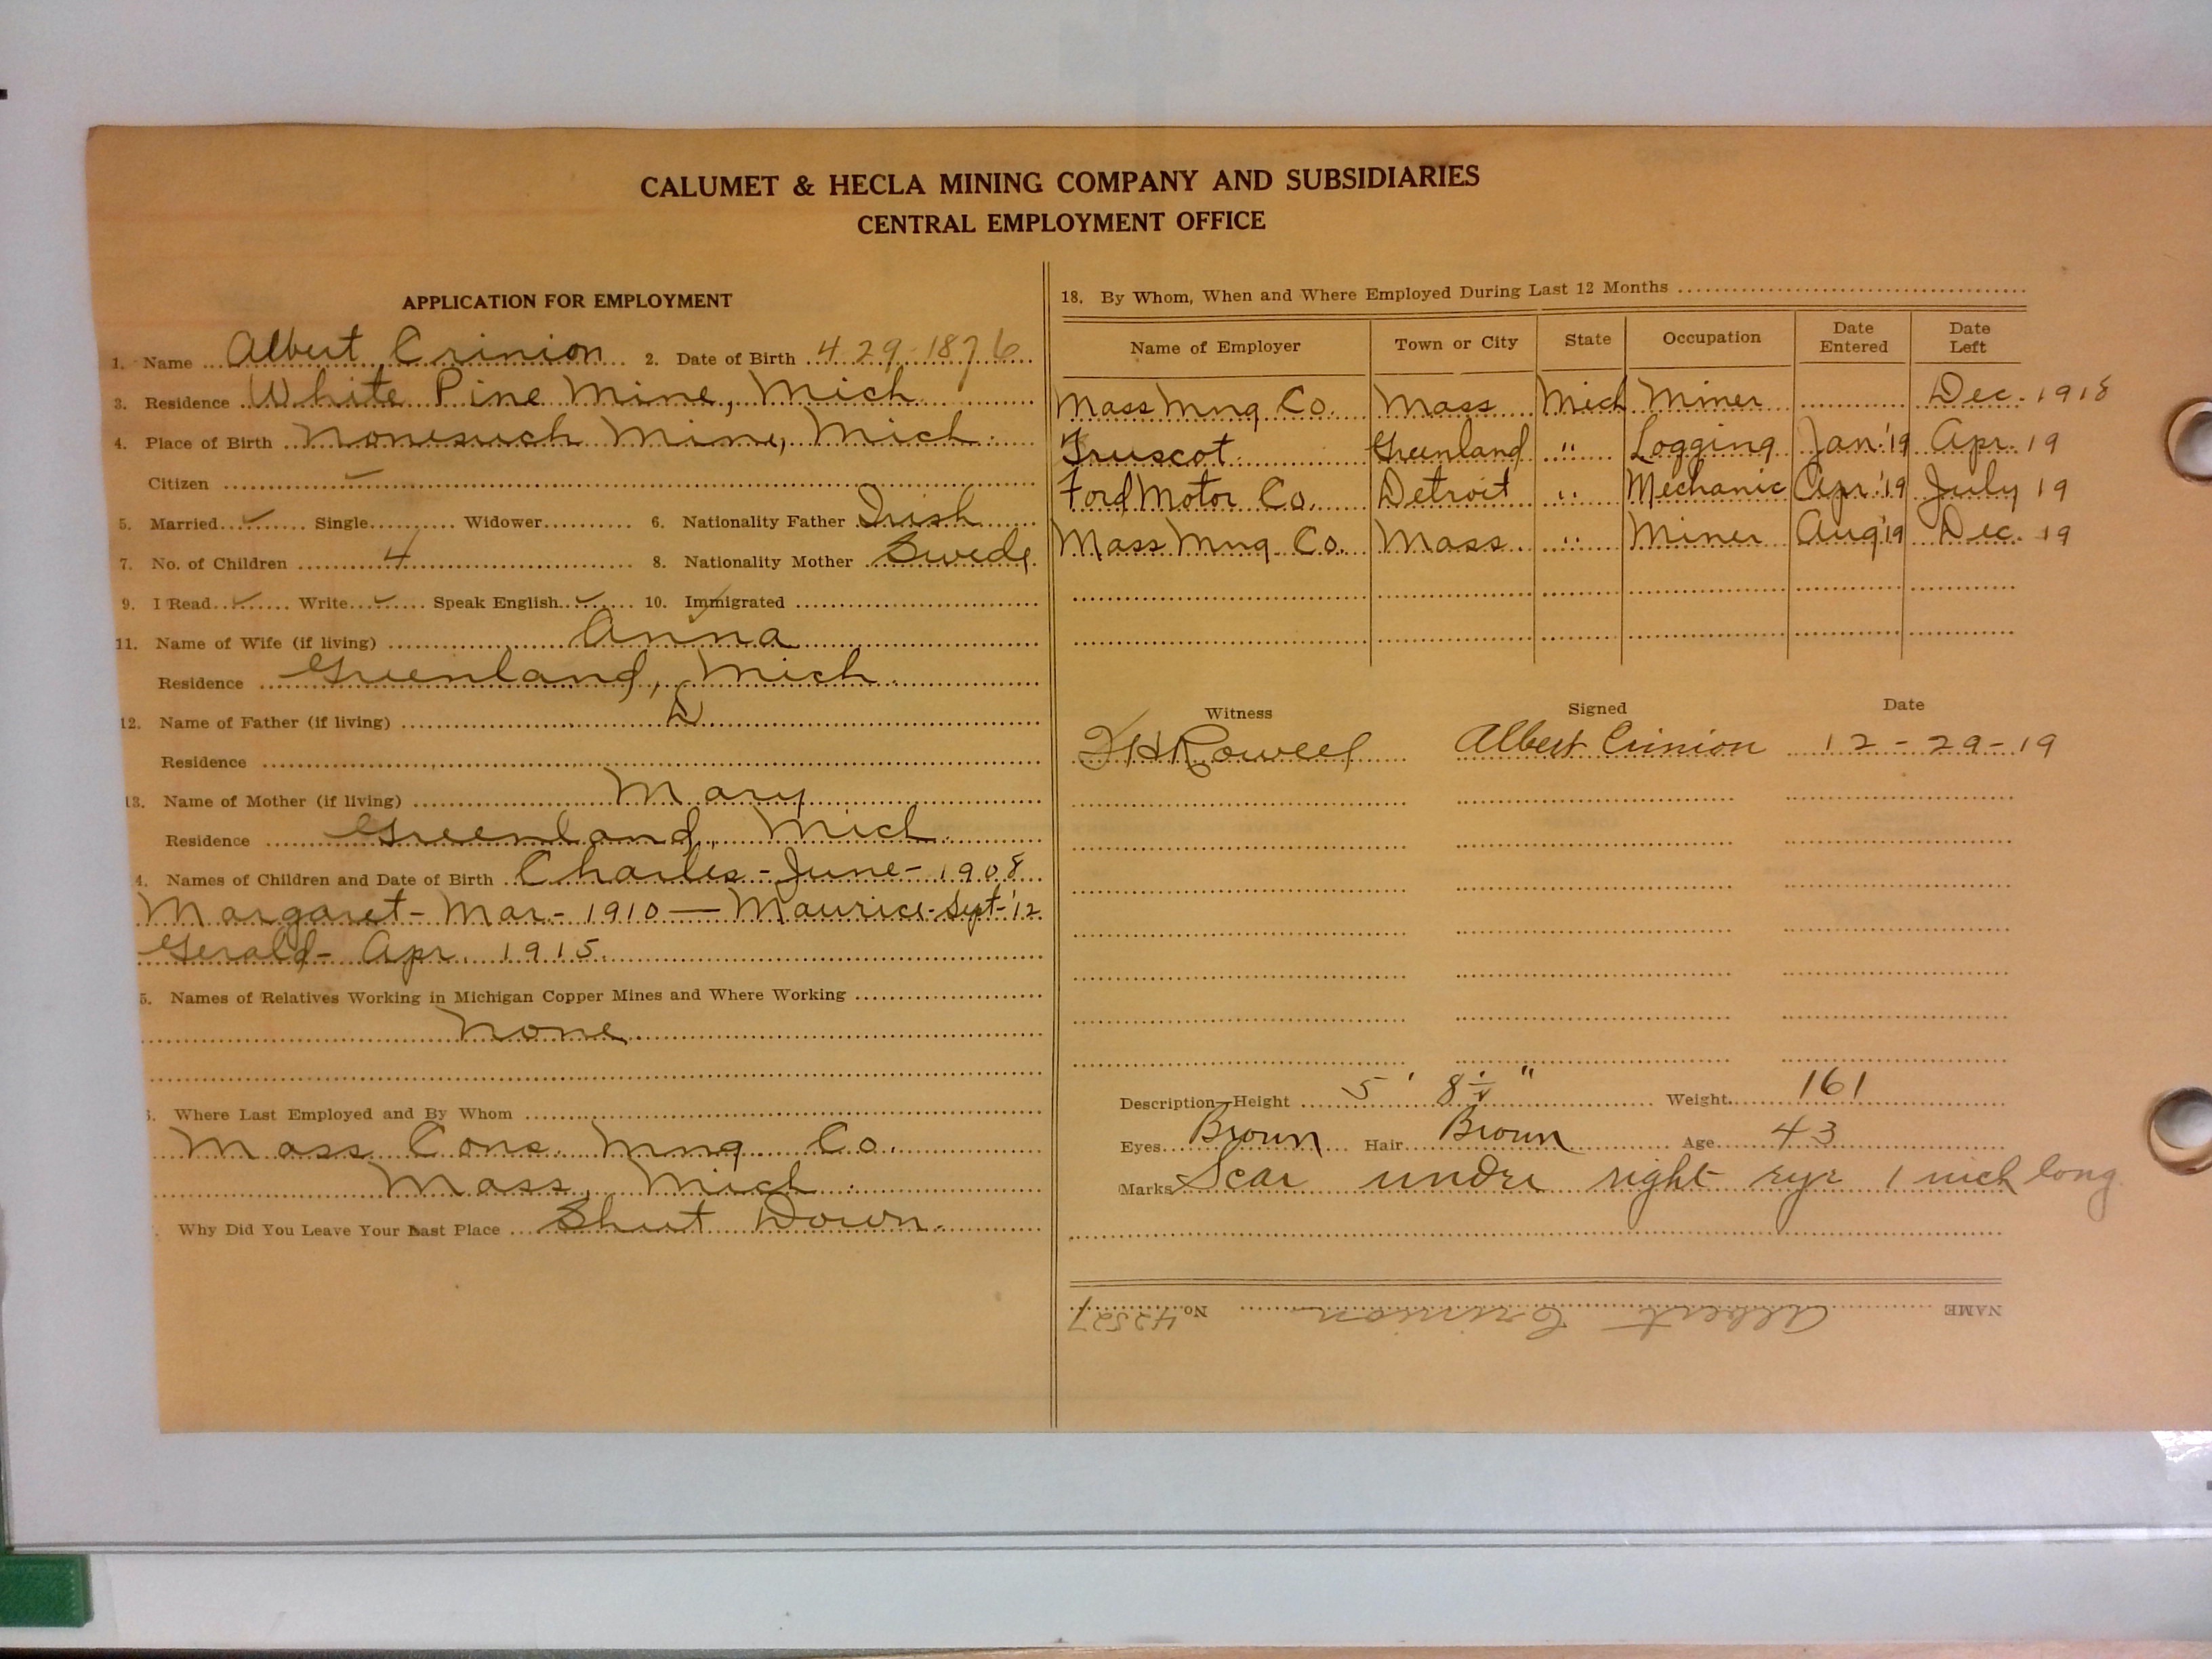 CALUMET & HECLA MINING COMPANY AND SUBSIDIARIES
CENTRAL EMPLOYMENT OFFICE
APPLICATION FOR EMPLOYMENT
1. Name Albert Crinion 2. Date of Birth 4 29 1876
3. Residence White Pine Mine, Mich.
4. Place of Birth Nonesuch Mine, Mich.
Citizen ✓
5. Married ✓ Single Widower 6. Nationality Father Irish
7. No. of Children 4 8. Nationality Mother Swede
9. I Read ✓ Write ✓ Speak English ✓ 10. Immigrated
11. Name of Wife (if living) Anna
Residence Greenland, Mich.
12. Name of Father (if living) D
Residence
13. Name of Mother (if living) Mary
Residence Greenland, Mich.
4. Names of Children and Date of Birth Charles - June - 1908
Margaret - Mar - 1910 — Maurice - Sept - '12
Gerald - Apr. 1915.
5. Names of Relatives Working in Michigan Copper Mines and Where Working
None
Where Last Employed and By Whom
Mass Cons. Mng Co.
Mass, Mich.
Why Did You Leave Your Last Place Shut Down.
18. By Whom, When and Where Employed During Last 12 Months
Name of Employer Town or City State Occupation Date Entered Date Left
Mass Mng Co. Mass Mich Miner Dec. 1918
Truscot Greenland " Logging Jan. '19 Apr. 19
Ford Motor Co. Detroit " Mechanic Apr '19 July 19
Mass Mng Co. Mass " Miner Aug '19 Dec. 19
Witness Signed Date
Rowell Albert Crinion 12-29-19
Description—Height 5' 8 " Weight 161
Eyes Brown Hair Brown Age 43
Marks Scar under right eye 1 inch long
NAME Albert Crinion No. 42527